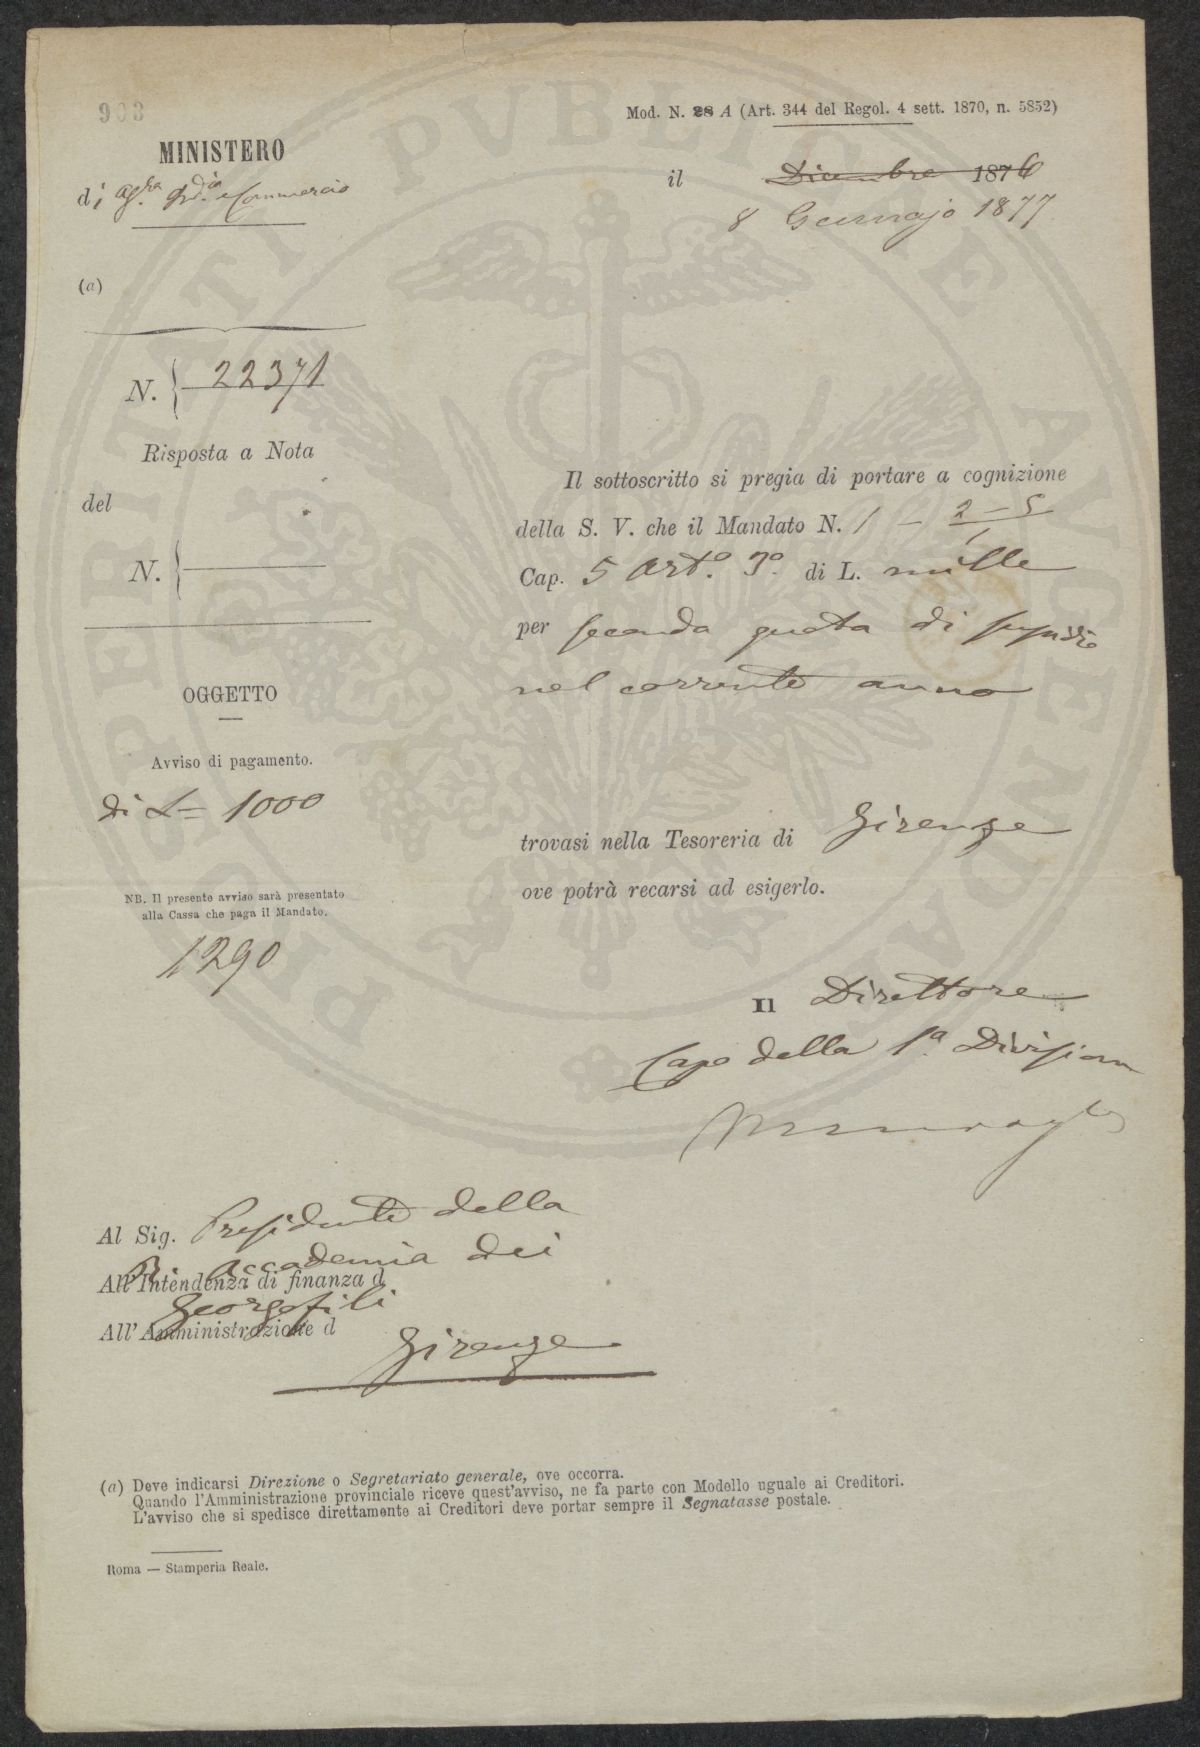 903
Mod. N. 28 A (Art. 344 del Regol. 4 sett. 1870, n. 5852)
MINISTERO
di Agra. Ind.ia e Commercio
il Dicembre 1876
8 Gennajo 1877
(a)
N. { 22371
Risposta a Nota
del
N. {
Il sottoscritto si pregia di portare a cognizione
della S. V. che il Mandato N. 1 - 2-5
Cap. 5 Art.o 3o. di L. mille
per seconda quota di sussidio
nel corrente anno
OGGETTO
Avviso di pagamento.
di L= 1000
trovasi nella Tesoreria di Firenze
ove potrà recarsi ad esigerlo.
NB. Il presente avviso sarà presentato
alla Cassa che paga il Mandato.
1290
Il Direttore
Capo della 1a. Division
Al Sig. Presidente della
R. Accademia dei
All'Intendenza di finanza d
Georgofili
All'Amministrazione d
Firenze
(a) Deve indicarsi Direzione o Segretariato generale, ove occorra.
Quando l'Amministrazione provinciale riceve quest'avviso, ne fa parte con Modello uguale ai Creditori.
L'avviso che si spedisce direttamente ai Creditori deve portar sempre il Segnatasse postale.
Roma — Stamperia Reale.
PROSPERITATI PVBLICAE AVGENDAE